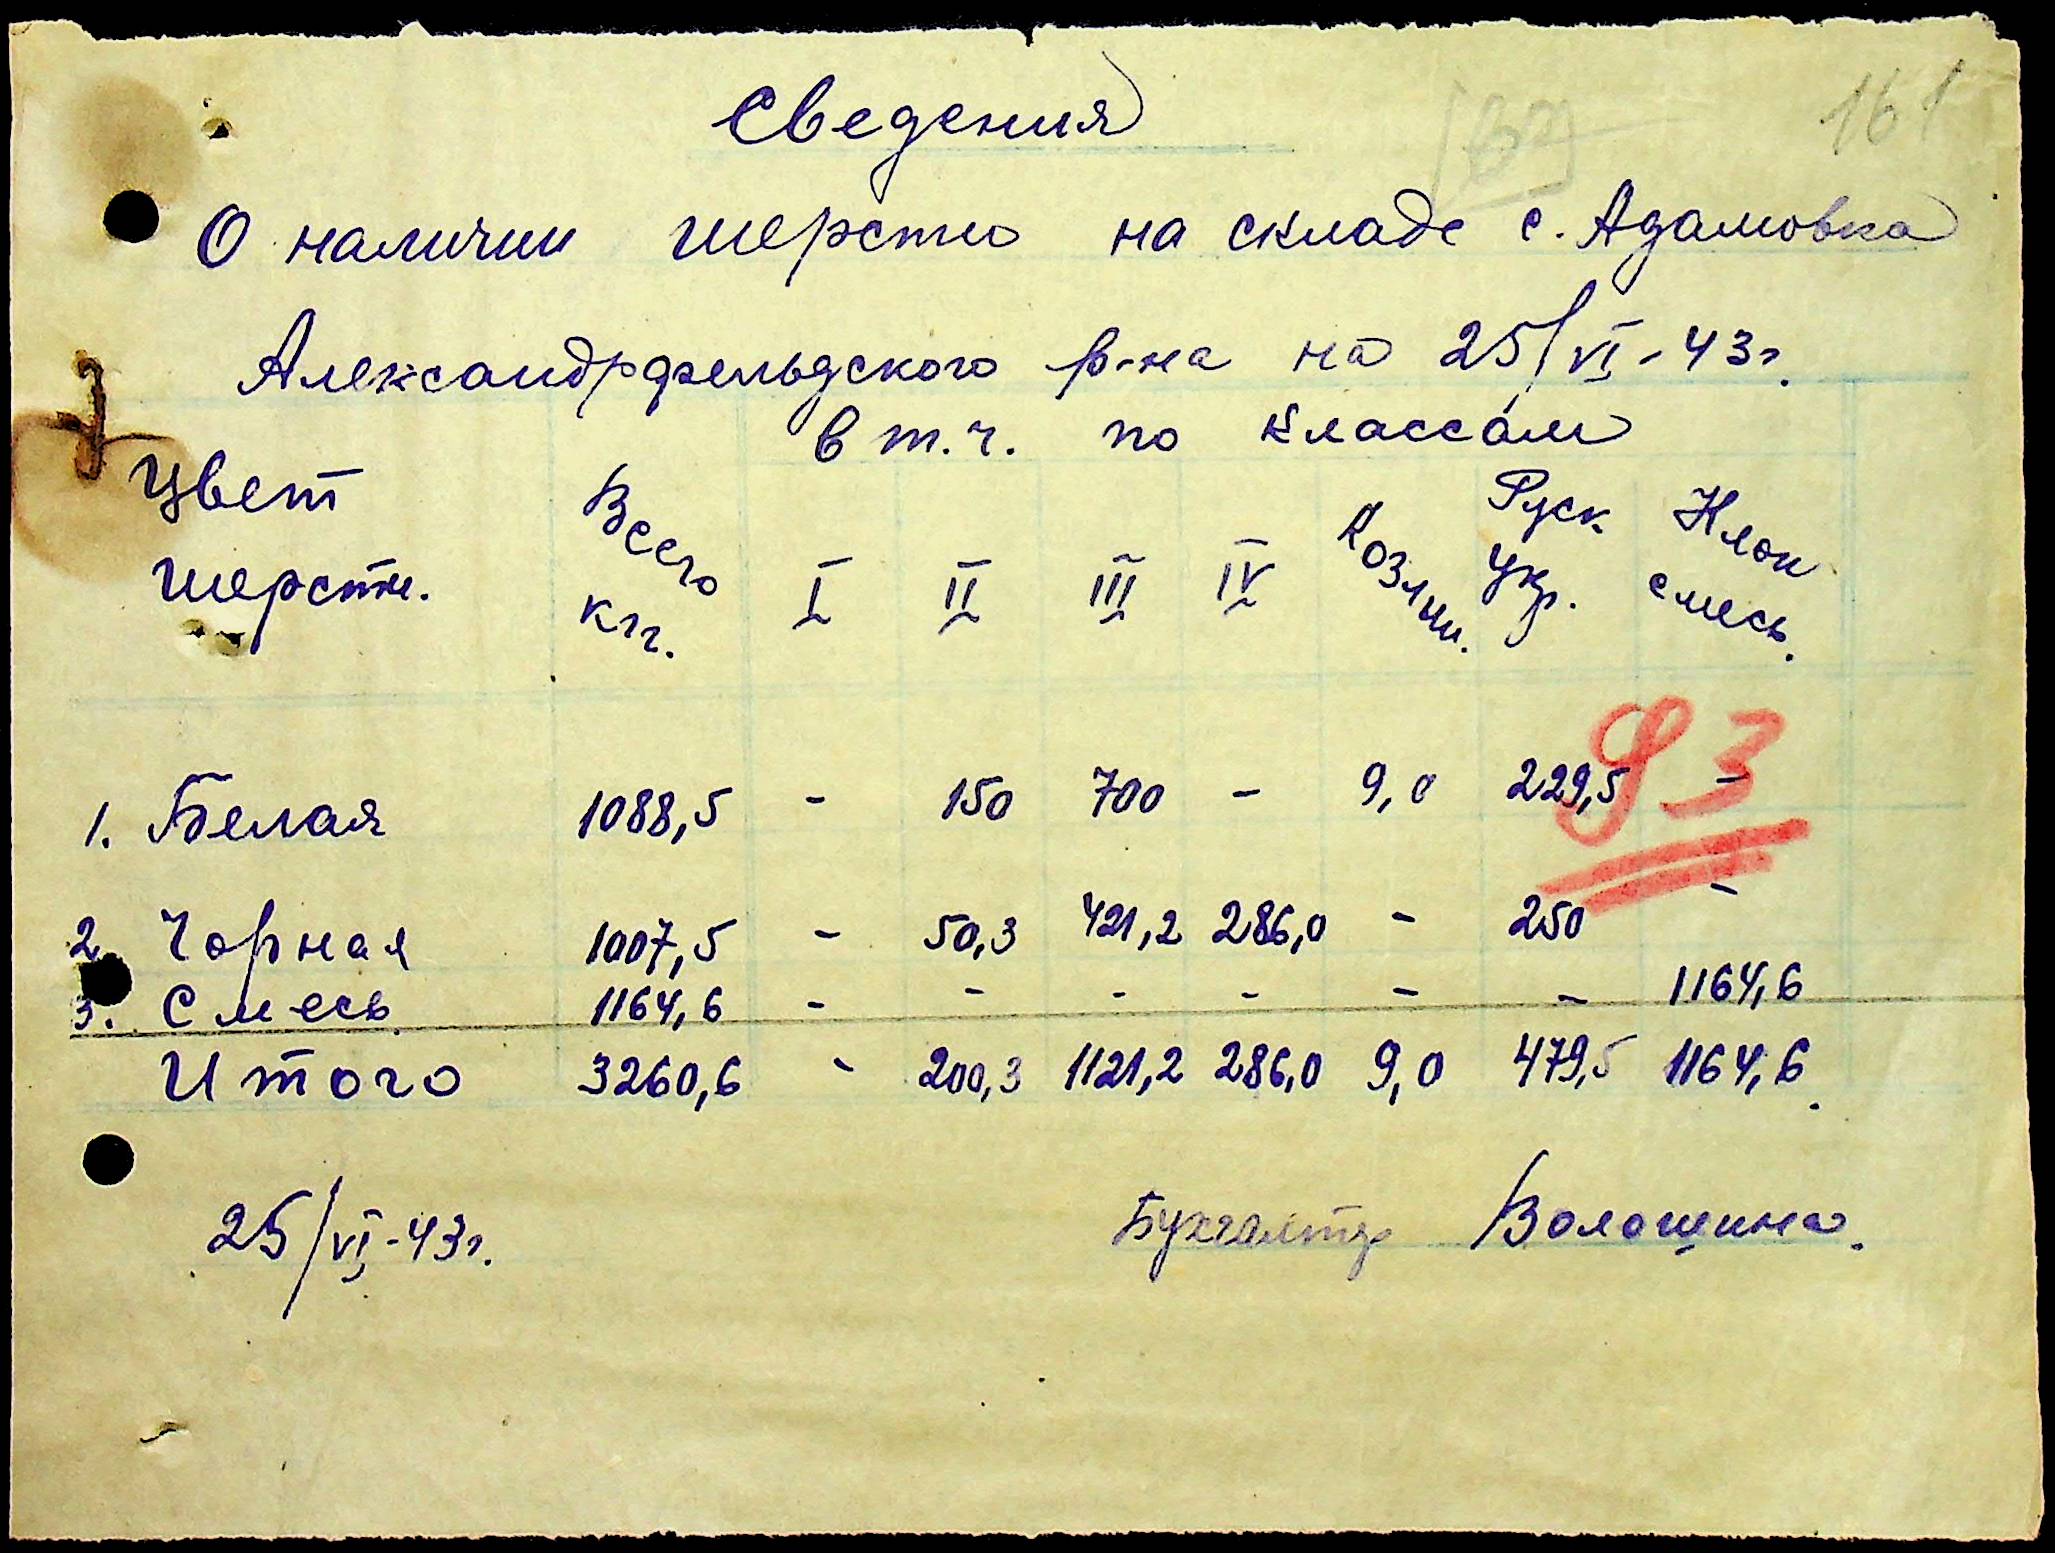 161
Сведения
О наличии шерсти на складе с. Адамовка
Александрфельдского р-на на 25/VI-43г.
в т.ч. по классам
Цвет шерсти. Всего кгг. I II III IV Козлин. Руск Укр. Клок смесь.
93
1. Белая 1088,5 - 150 700 - 9,0 229,5 -
2. Чорная 1007,5 - 50,3 421,2 286,0 - 250 -
3. Смесь 1164,6 - - - - - - 1164,6
Итого 3260,6 - 200,3 1121,2 286,0 9,0 479,5 1164,6.
25/VI-43г. Бухгалтер Волошина.